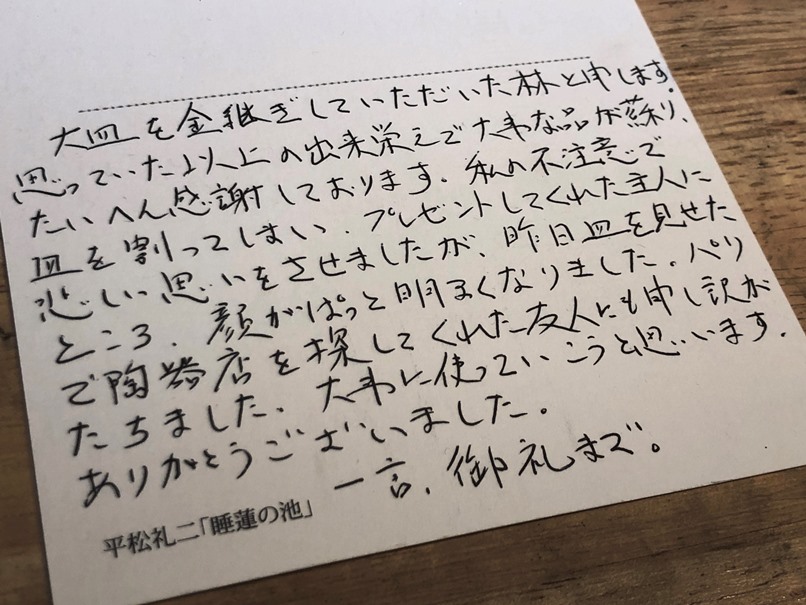 大皿を金継ぎしていただいた林と申します。
思っていた以上の出来栄えで大事な品が蘇り、
たいへん感謝しております。私の不注意で
皿を割ってしまい、プレゼントしてくれた主人に
悲しい思いをさせましたが、昨日皿を見せた
ところ、顔がぱっと明るくなりました。パリ
で陶器店を探してくれた友人にも申し訳が
たちました。大事に使っていこうと思います。
ありがとうございました。
一言、御礼まで。
平松礼二「睡蓮の池」